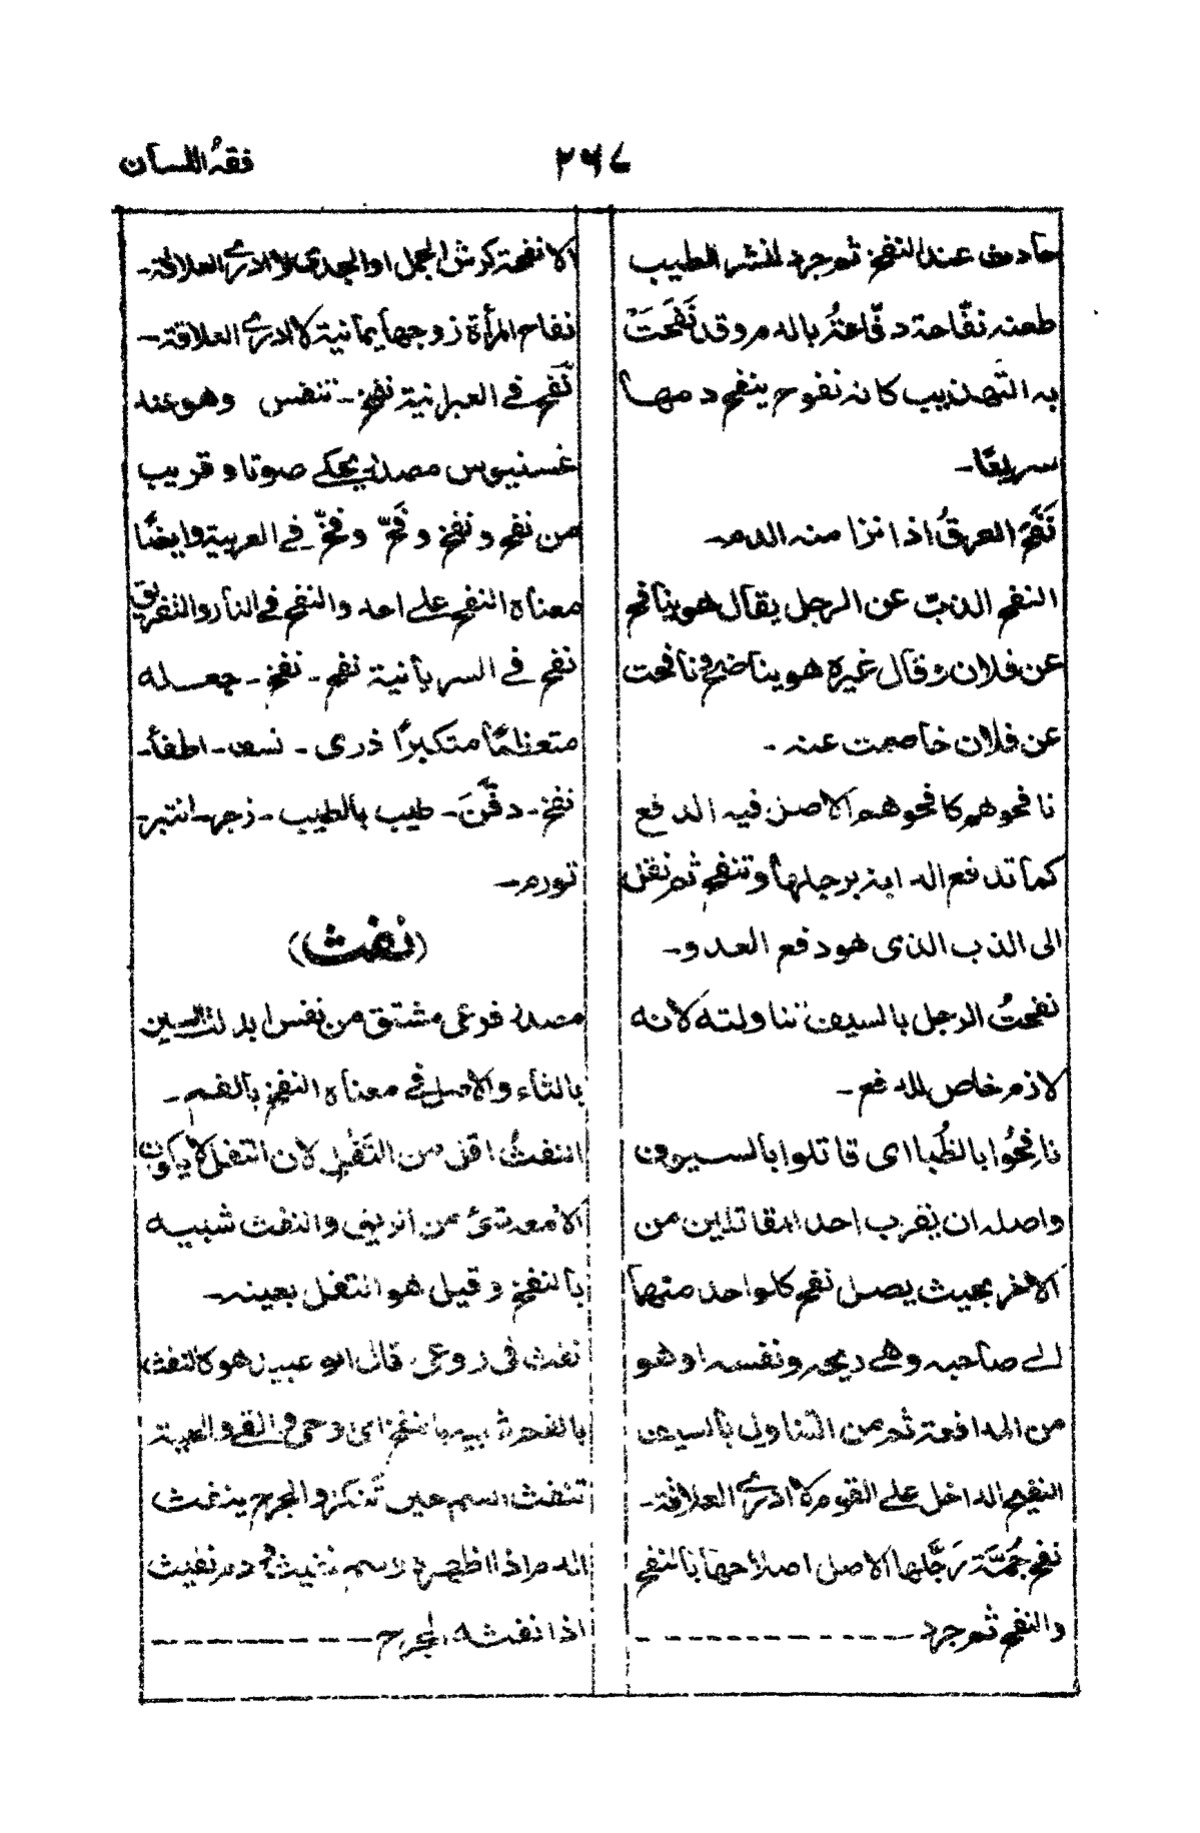 فقہ اللسان
٢٦٧
حادث عند النفخ ثم جرد لنشر الطيب
طعنہ نفّاحة دفّاعةٌ بالدم وقد نَفَحَتْ
بہ التهذيب كانہ نفوح ينفح دمها
سريعًا۔
نَفَحَ العرقُ اذا نزا منہ الدم۔
النفح الذبّ عن الرجل يقال هو ينافح
عن فلان وقال غيره هو يناضح ونافحت
عن فلان خاصمت عنہ۔
نافحوهم كافحوهم الاصل فيہ الدفع
كما تدفع الدابة برجلها وتنفح ثم نقل
الى الذب الذى هو دفع العدو۔
نفحتُ الرجل بالسيف تناولتہ كانہ
لازم خاص للدفع۔
نافِحُوا بالظُبا اى قاتلوا بالسيوف
واصلہ ان يقرب احد المقاتلين من
الآخر بحيث يصل نفح كلواحد منهما
الے صاحبہ وهے ريحہ ونفسہ او هو
من المدافعة ثم من التناول بالسيف
النفيح الداخل علے القوم لا ادرے العلاقة۔
نفح جُمَّتہ رَجَّلها الاصل اصلاحها بالنفح
والنفح ثم جرد
الانفحة كرش الحمل او الجدى ولا ادرے العلاقة۔
نفاح المرأة زوجها يمانية لا ادرے العلاقة۔
نَفَح فے العبرانية نفخ۔ تنفس وهو عند
غسنيوس مصدر يحكے صوتا وقريب
من نفح ونفخ وفَحّ وفخّ فے العربية وايضًا
معناه النفح علے احد والنفح فے النار والتفريق
نفح فے السريانية نفح۔ نفخ۔ جعلہ
متعظمًا متكبرًا ذرى۔ نسف۔ اطفأ۔
نفخ۔ دفَّنَ۔ طيب بالطيب۔ زجر۔ انتبر۔
تورم۔
(نفث)
مصدر فرعى مشتق من نفس ابدلت السين
بالثاء والاصل فے معناه النفخ بالفم۔
النفثُ اقل من التَفْل لان التفل لا يكون
الا معہ شئ من الريق والنفث شبيہ
بالنفخ وقيل هو التفل بعينہ۔
نفث فى روعى قال ابو عبيد هو كالنفث
بالفم شبيہ بالنفخ اى وحى والقى والحية
تنفث السم حين تَنكز والجرح ينفث
الدم اذا اظهره وسم نفيث ودم نفيث
اذا نفثہ الجرح